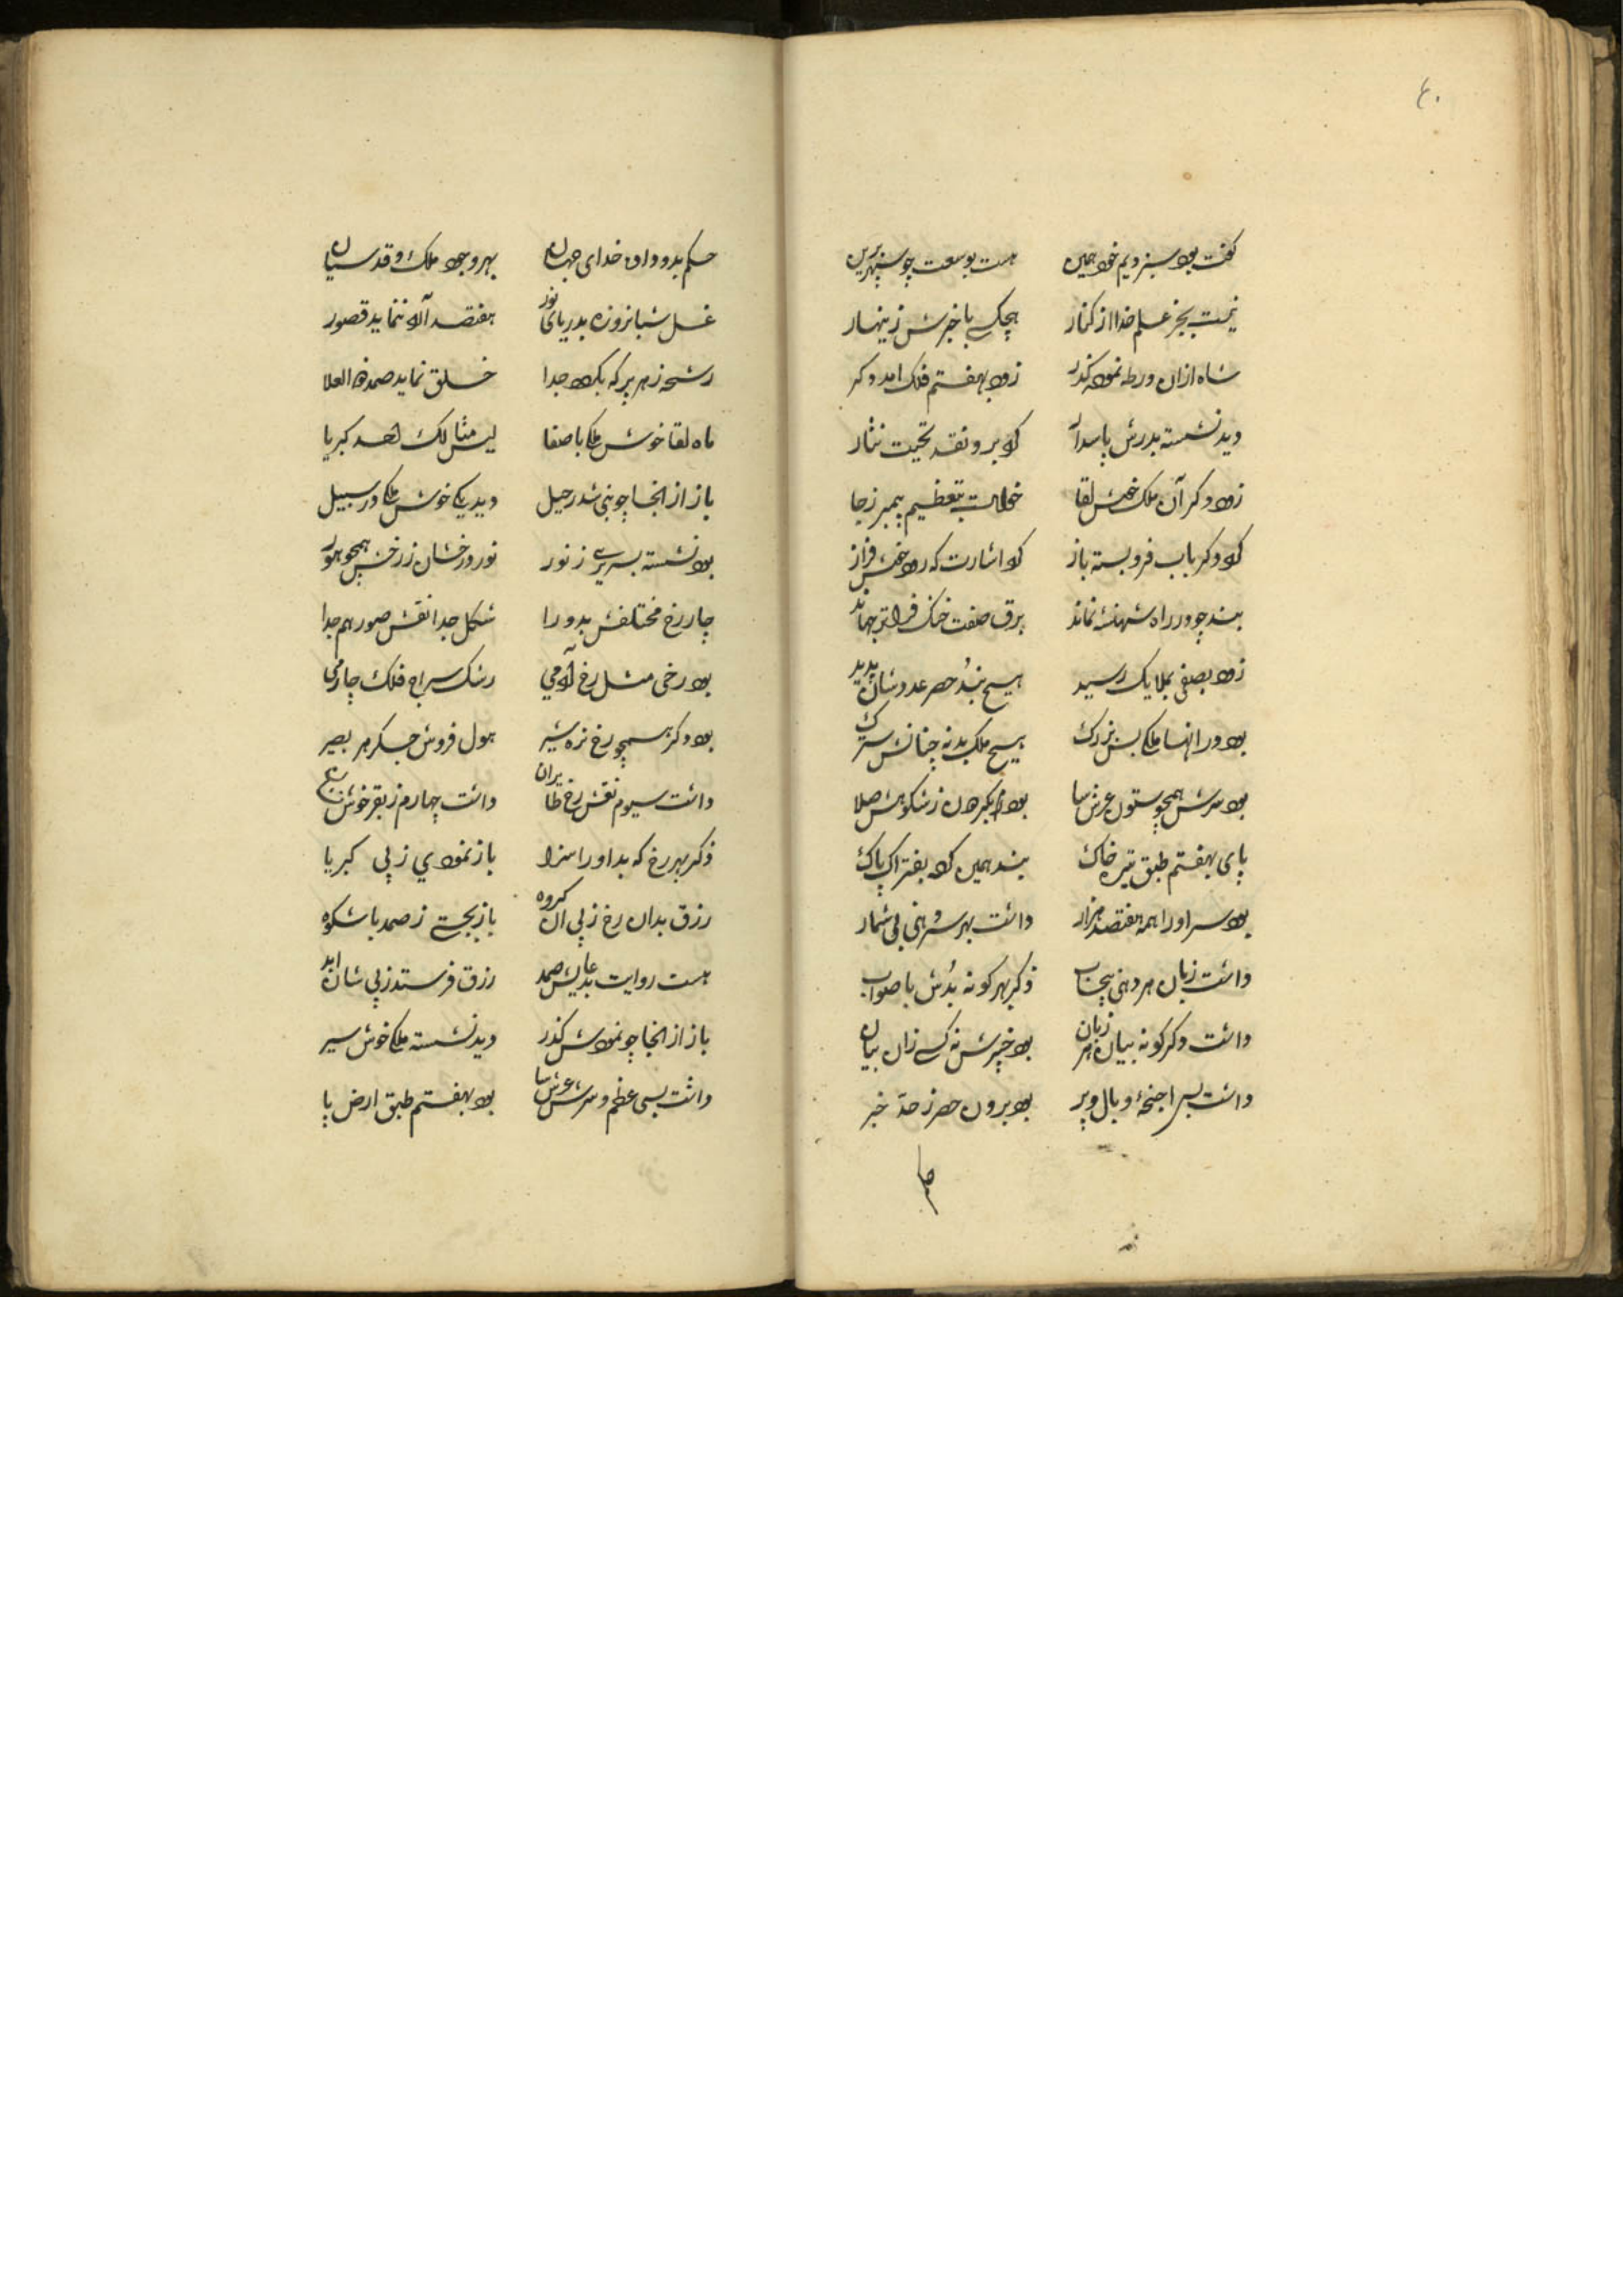 ٤٠
گفت بود سبز ویم خود همین هست بوسعت چو سپهر برین
نیست بجز علم خدا از کنار هیچکس با خبرش زینهار
شاه ازان ورطه نموده گذر زود بهفتم فلک امد دگر
دید نشسته بدرش پاسدار کرد برو نقد تحیت نثار
زود دگر آن ملک خوش لقا خاست بتعظیم پیمبر زجا
کرد دگر باب فروبسته باز کرد اشارت که رود خوش فراز
بند چو در راه شهنشه نماند برق صفت خنک فراتر جهاند
زود بصفی ملایک رسید هیچ نبد حصر عددشان پدید
بود در انها ملکی بس بزرک هیچ ملک بد نه چنانش سترک
بود سرش همچو ستون عرش سا بود شکوهش صلا
پای بهفتم طبق تیره خاک بند همین کرد بفتراک پاک
بود سر او را همه هفتصد هزار داشت بهر سر دهنی بی شمار
داشت زبان هر دهنی بیحساب ذکر بهر کونه بدش با صواب
داشت دگر کونه بیان هر زبان بود خبرش نه کسی زان بیان
داشت بسی اجنحه و بال و پر بود برون حصر ز حد خبر
حکم
حکم بدو داد خدای جهان بهر وجود ملک و قدسیان
غسل شبانروزه بدریای نور هفتصد آلاد ننماید قصور
رشحه ز هر پر که چکد جدا خلق نماید صمد ذو العلا
ماه لقا خوش ملکی با صفا لیس مثالک لصمد کبریا
باز از انجا چو نبی شد رحیل دید یکی خوش ملکی در سبیل
بود نشسته بسریری ز نور نور درخشان ز رخش همچو هور
چار رخ مختلفش بد ورا شکل جدا نقش صور هم جدا
بود رخی مثل رخ آدمی رشک سراج فلک چارمی
بود دگر همچو رخ نره شیر هول فروش جگر هر بصیر
داشت سیوم نقش رخ طایران داشت چهارم ز بقر خوش نشان
ذکر بهر رخ که بد او را سزا باز نمودی ز پی کبریا
رزق بدان رخ ز پی ان کروه باز بجستی ز صمد با شکوه
هست روایت بدعایش صمد رزق فرستد ز پی شان ابد
باز از انجا چو نمودش گذر دید نشسته ملکی خوش سیر
داشت بسی عظم و سرش عرش سا بود بهفتم طبق ارض پا